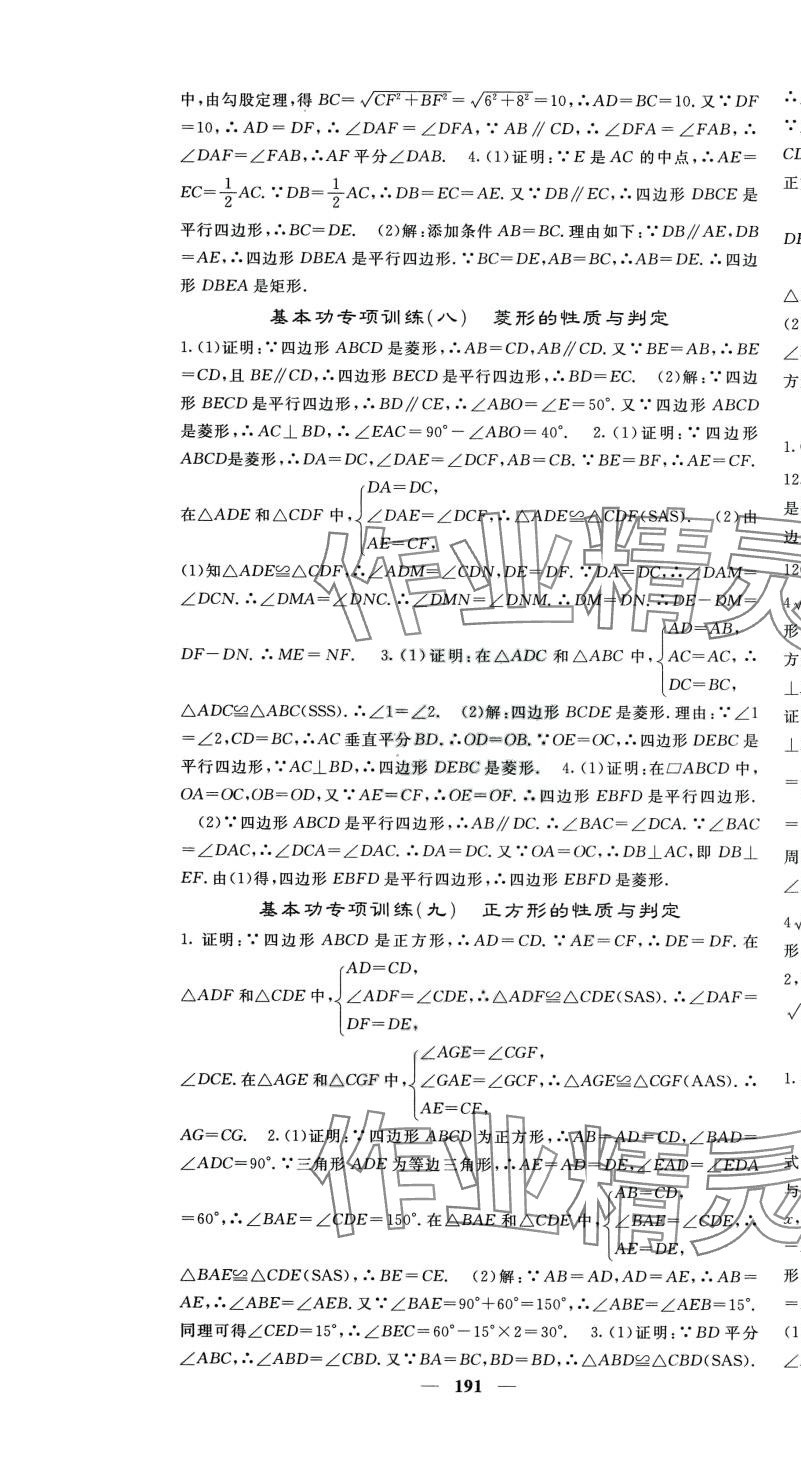 中,由勾股定理,得 BC=√(CF²+BF²)=√(6²+8²)=10,∴AD=BC=10.又∵DF
=10,∴AD=DF,∴∠DAF=∠DFA,∵AB∥CD,∴∠DFA=∠FAB,∴
∠DAF=∠FAB,∴AF平分∠DAB. 4.(1)证明:∵E是AC的中点,∴AE=
EC=1/2AC.∵DB=1/2AC,∴DB=EC=AE.又∵DB∥EC,∴四边形 DBCE 是
平行四边形,∴BC=DE. (2)解:添加条件AB=BC.理由如下:∵DB∥AE,DB
=AE,∴四边形 DBEA 是平行四边形.∵BC=DE,AB=BC,∴AB=DE.∴四边
形 DBEA 是矩形.
基本功专项训练(八) 菱形的性质与判定
1.(1)证明:∵四边形 ABCD 是菱形,∴AB=CD,AB∥CD.又∵BE=AB,∴BE
=CD,且BE∥CD,∴四边形 BECD 是平行四边形,∴BD=EC. (2)解:∵四边
形 BECD 是平行四边形,∴BD∥CE,∴∠ABO=∠E=50°.又∵四边形 ABCD
是菱形,∴AC⊥BD,∴∠EAC=90°-∠ABO=40°. 2.(1)证明:∵四边形
ABCD是菱形,∴DA=DC,∠DAE=∠DCF,AB=CB.∵BE=BF,∴AE=CF.
DA=DC,
在△ADE和△CDF中,{∠DAE=∠DCF,∴△ADE≌△CDF(SAS). (2)由
AE=CF,
(1)知△ADE≌△CDF,∴∠ADM=∠CDN,DE=DF.∵DA=DC,∴∠DAM=
∠DCN.∴∠DMA=∠DNC.∴∠DMN=∠DNM.∴DM=DN.∴DE-DM=
AD=AB,
DF-DN.∴ME=NF. 3.(1)证明:在△ADC和△ABC中,{AC=AC,∴
DC=BC,
△ADC≌△ABC(SSS).∴∠1=∠2. (2)解:四边形 BCDE 是菱形.理由:∵∠1
=∠2,CD=BC,∴AC垂直平分BD.∴OD=OB.∵OE=OC,∴四边形 DEBC 是
平行四边形,∵AC⊥BD,∴四边形 DEBC 是菱形. 4.(1)证明:在□ABCD中,
OA=OC,OB=OD,又∵AE=CF,∴OE=OF.∴四边形 EBFD 是平行四边形.
(2)∵四边形 ABCD 是平行四边形,∴AB∥DC.∴∠BAC=∠DCA.∵∠BAC
=∠DAC,∴∠DCA=∠DAC.∴DA=DC.又∵OA=OC,∴DB⊥AC,即DB⊥
EF.由(1)得,四边形 EBFD 是平行四边形,∴四边形 EBFD 是菱形.
基本功专项训练(九) 正方形的性质与判定
1. 证明:∵四边形 ABCD 是正方形,∴AD=CD.∵AE=CF,∴DE=DF.在
AD=CD,
△ADF和△CDE中,{∠ADF=∠CDE,∴△ADF≌△CDE(SAS).∴∠DAF=
DF=DE,
∠AGE=∠CGF,
∠DCE.在△AGE和△CGF中,{∠GAE=∠GCF,∴△AGE≌△CGF(AAS).∴
AE=CF,
AG=CG. 2.(1)证明:∵四边形 ABCD 为正方形,∴AB=AD=CD,∠BAD=
∠ADC=90°.∵三角形 ADE 为等边三角形,∴AE=AD=DE,∠EAD=∠EDA
AB=CD,
=60°,∴∠BAE=∠CDE=150°.在△BAE和△CDE中,{∠BAE=∠CDE,∴
AE=DE,
△BAE≌△CDE(SAS),∴BE=CE. (2)解:∵AB=AD,AD=AE,∴AB=
AE,∴∠ABE=∠AEB.又∵∠BAE=90°+60°=150°,∴∠ABE=∠AEB=15°.
同理可得∠CED=15°,∴∠BEC=60°-15°×2=30°. 3.(1)证明:∵BD平分
∠ABC,∴∠ABD=∠CBD.又∵BA=BC,BD=BD,∴△ABD≌△CBD(SAS).
— 191 —
作业精灵
作业精灵